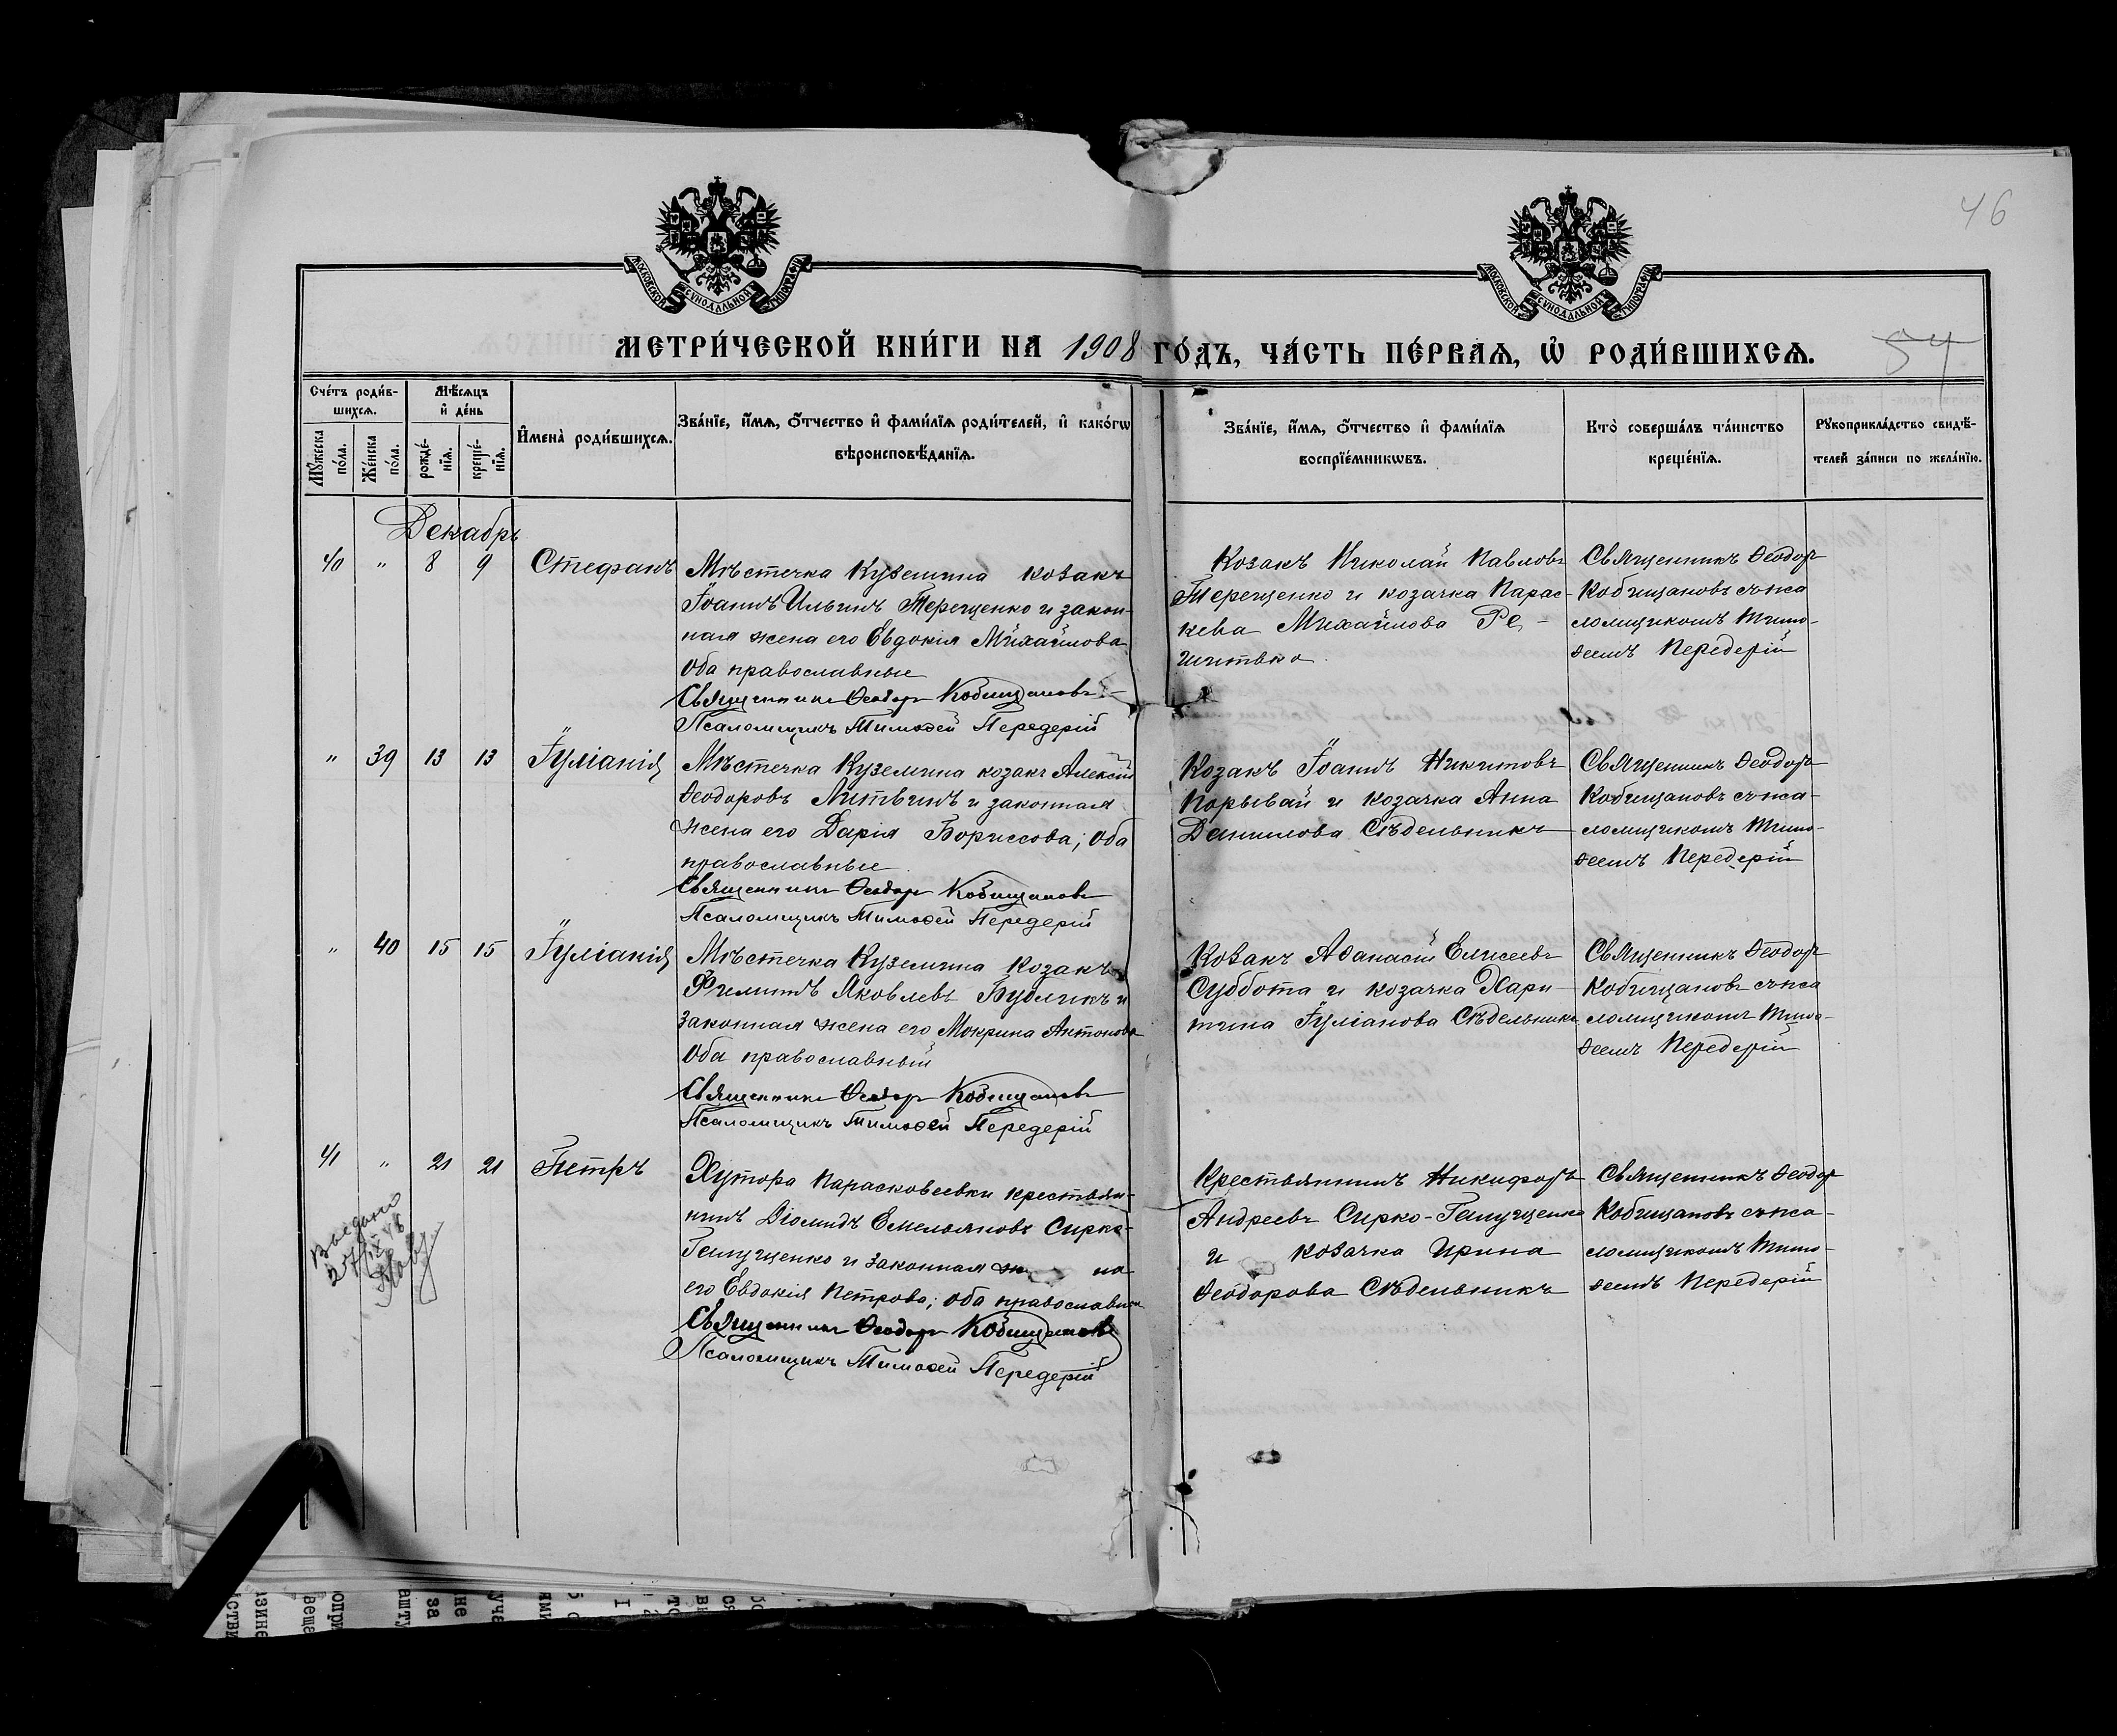 46
МОСКОВСКОЙ СѴНОДАЛЬНОЙ ТИПОГРАФІИ
МОСКОВСКОЙ СѴНОДАЛЬНОЙ ТИПОГРАФІИ
МЕТРИ́ЧЕСКОЙ КНИ́ГИ НА 1908 ГО́ДЪ, ЧА́СТЬ ПЕ́РВАѦ, Ѡ҆ РОДИ́ВШИХСѦ.
54
Сче́тъ роди́в-
шихсѧ.
Мѣ́сѧцъ
и҆ де́нь
Мꙋ́жеска
по́ла.
Же́нска
по́ла.
рожде́-
нїѧ.
креще́-
нїѧ.
И҆мена̀ роди́вшихсѧ.
Зва́нїе, и҆́мѧ, ѻ҆́тчество и҆ фами́лїѧ роди́телей, и҆ како́гѡ
вѣроисповѣ́данїѧ.
Зва́нїе, и҆́мѧ, ѻ҆́тчество и҆ фами́лїѧ
воспрїе́мникѡвъ.
Кто̀ соверша́лъ та́инство
креще́нїѧ.
Рꙋкоприкла́дство свидѣ́-
телей за́писи по жела́нїю.
Декабрь
40 " 8 9 Стефанъ
Мѣстечка Куземина козакъ
Іоаннъ Ильинъ Терещенко и закон-
ная жена его Евдокія Михайлова
Оба православные
Священникъ Ѳеодоръ Кобищановъ
Псаломщикъ Тимоѳей Передерій
Козакъ Николай Павловъ
Терещенко и козачка Парас-
кева Михайлова Ре-
шитько
Священникъ Ѳеодоръ
Кобищановъ съ пса
ломщикомъ Тимо-
ѳеемъ Передерій
" 39 13 13 Іуліанія
Мѣстечка Куземина козакъ Алексій
Ѳеодоровъ Литвинъ и законная
жена его Дарія Борисова; Оба
православные
Священникъ Ѳеодоръ Кобищановъ
Псаломщикъ Тимоѳей Передерій
Козакъ Іоаннъ Никитовъ
Порывай и козачка Анна
Данилова Сѣдельникъ
Священникъ Ѳеодоръ
Кобищановъ съ пса-
ломщикомъ Тимо-
ѳеемъ Передерій
" 40 15 15 Іуліанія
Мѣстечка Куземина Козакъ
Филиппъ Яковлевъ Бубликъ и
законная жена его Мокрина Антонова
Оба православный
Священникъ Ѳеодоръ Кобищановъ
Псаломщикъ Тимоѳей Передерій
Козакъ Аѳанасій Елисеевъ
Суббота и козачка Хари-
тина Іуліанова Сѣдельникъ
Священникъ Ѳеодоръ
Кобищановъ съ пса
ломщикомъ Тимо-
ѳеемъ Передерій
41 " 21 21 Петръ
Хутора Парасковеевки крестьян-
нинъ Діомидъ Емельяновъ Сирко-
Галущенко и законная на
его Евдокія Петрова; оба православн
Священникъ Ѳеодоръ Кобищановъ
Псаломщикъ Тимоѳей Передерій
Крестьянинъ Никифоръ
Андреевъ Сирко-Галущенко
и козачка Ирина
Ѳеодорова Сѣдельникъ
Священникъ Ѳеодоръ
Кобищановъ съ пса-
ломщикомъ Тимо-
ѳеемъ Передерій